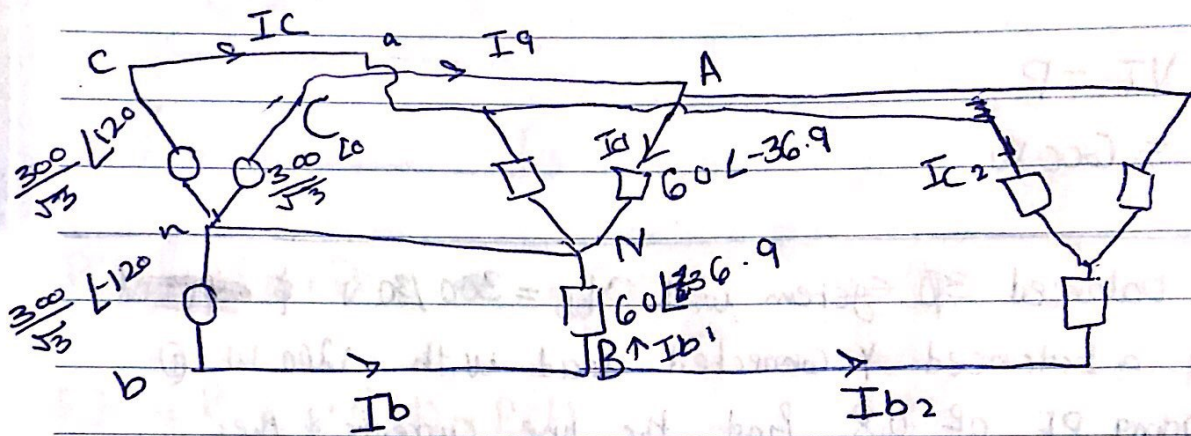 IC
a
Ia
C
A
300/√3 ∠120
300/√3 ∠0
Ia
60∠-36.9
IC2
n
N
300/√3 ∠-120
60∠-36.9
B ↑ Ib'
b
Ib
Ib2